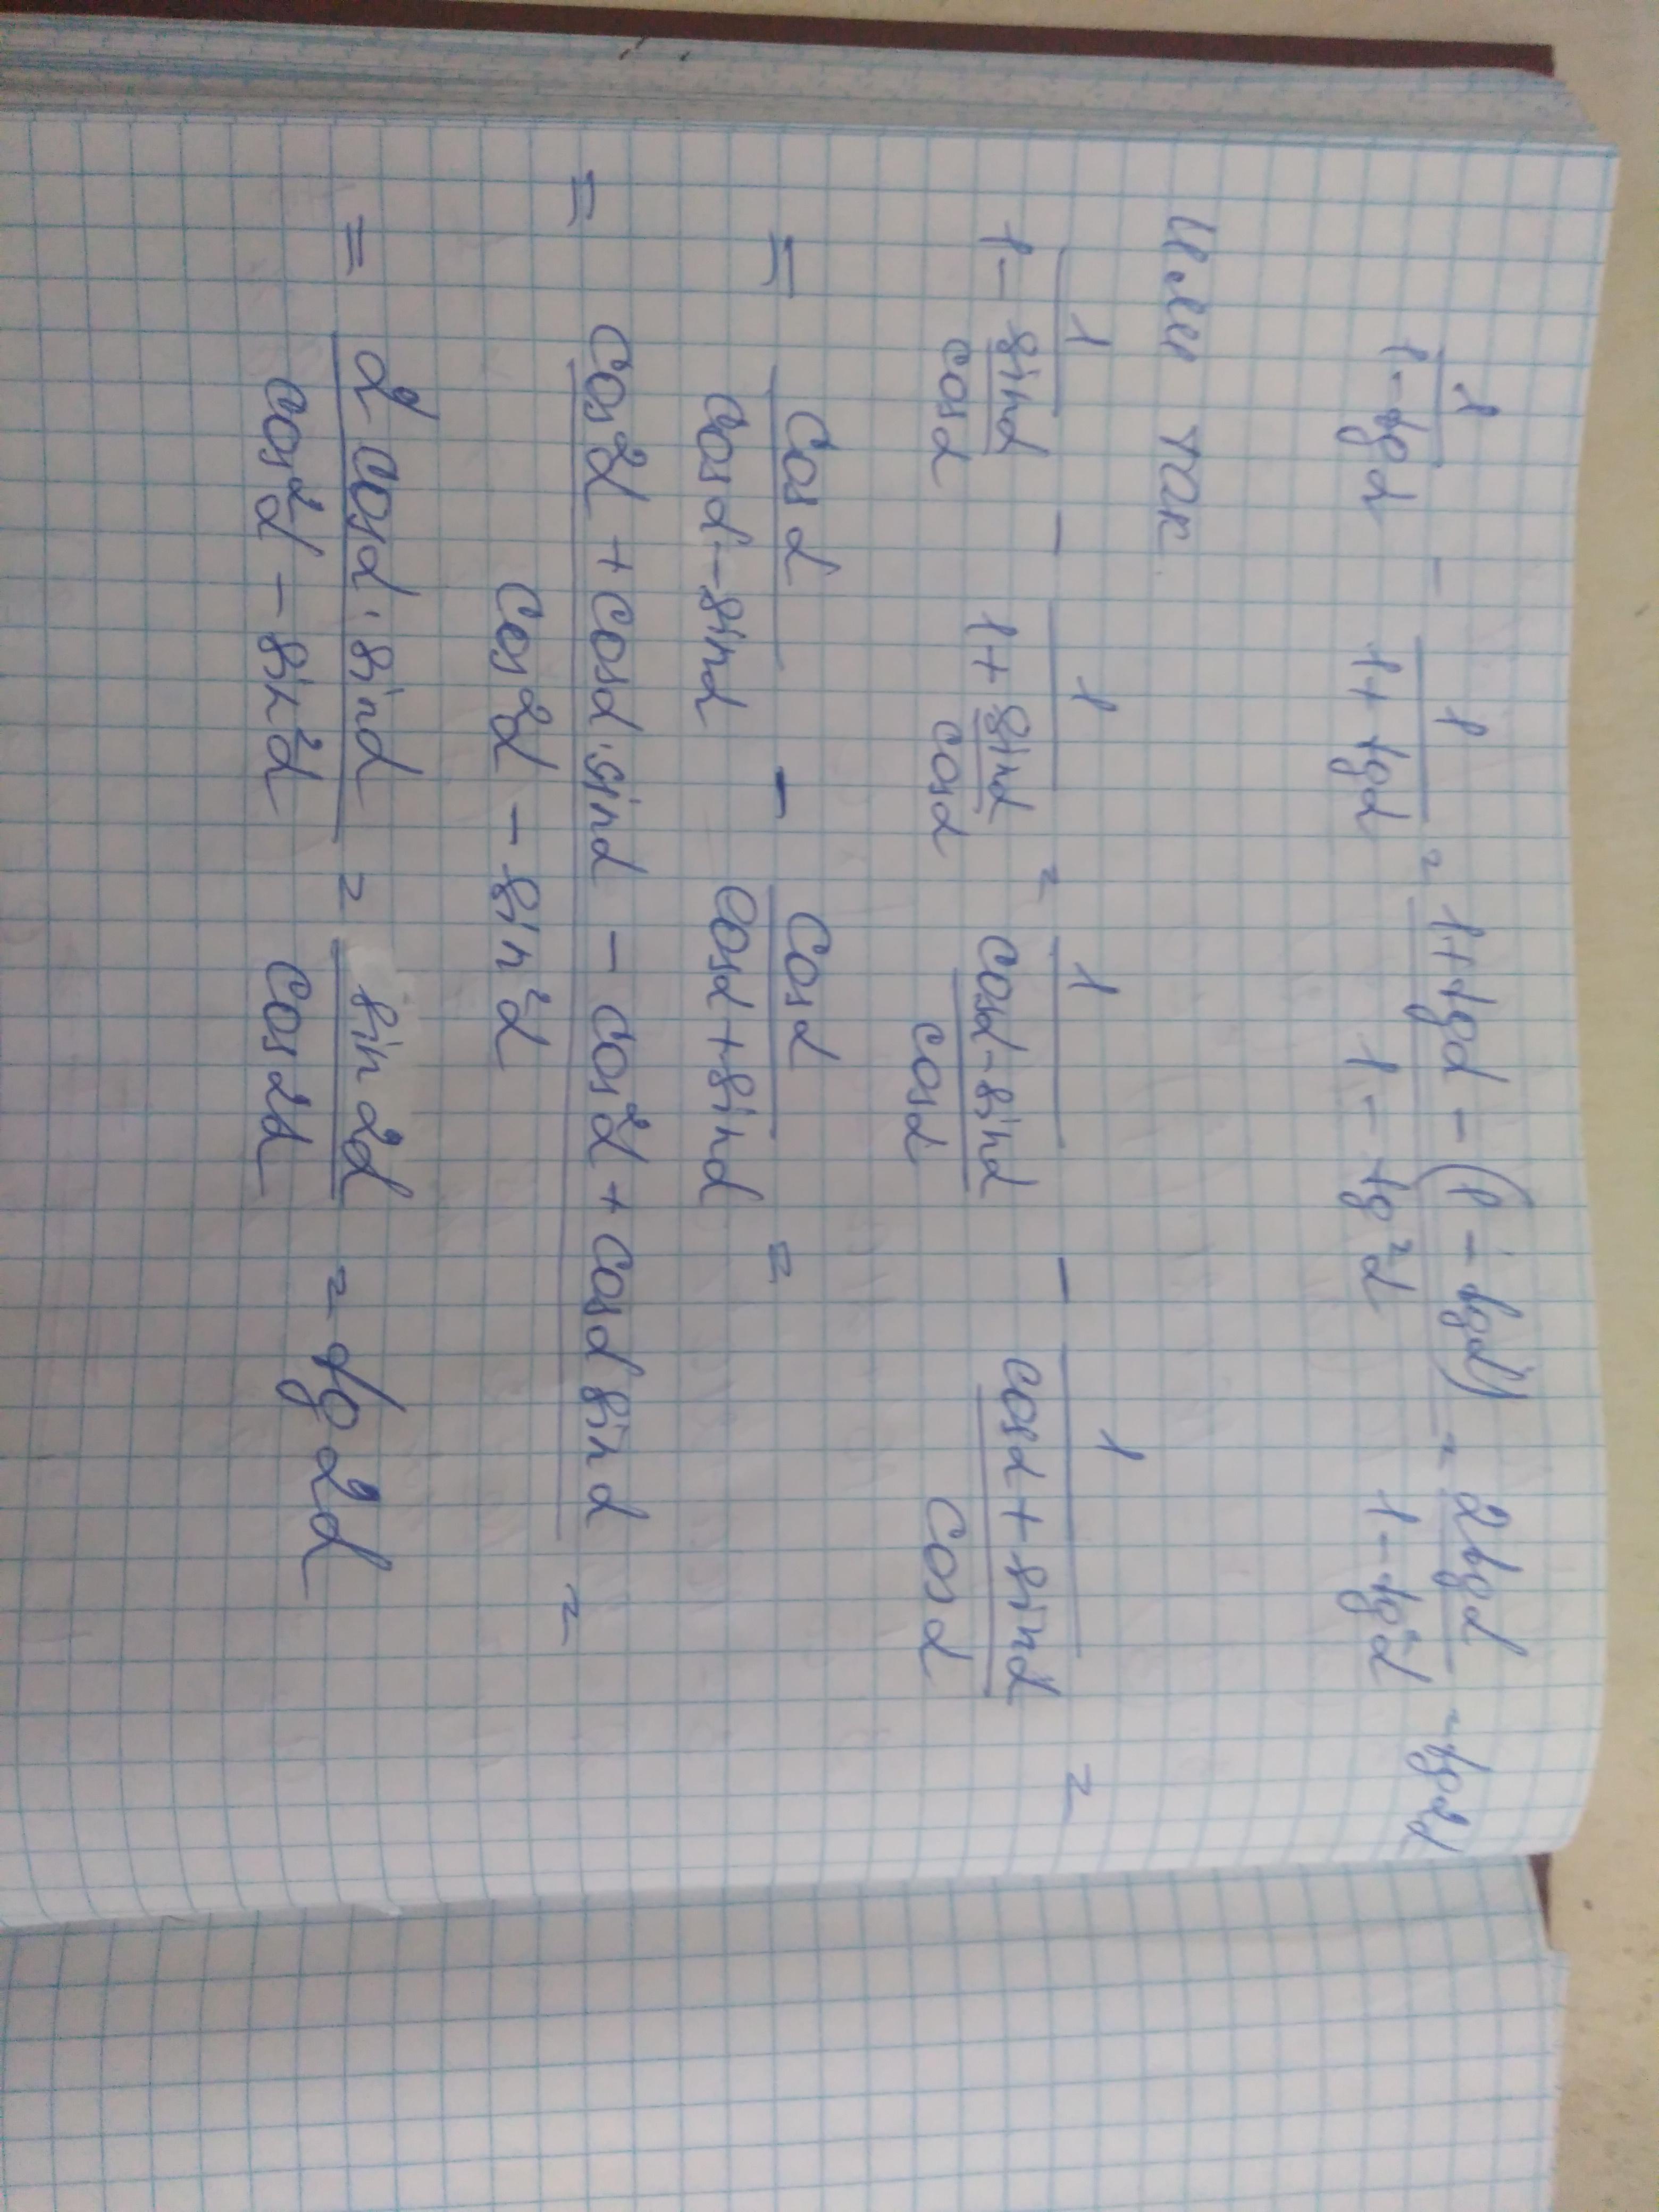 1/(1-tgα) - 1/(1+tgα) = (1+tgα-(1-tgα))/(1-tg²α) = 2tgα/(1-tg²α) = tg2α
Или так
1/(1-sinα/cosα) - 1/(1+sinα/cosα) = 1/((cosα-sinα)/cosα) - 1/((cosα+sinα)/cosα) =
= cosα/(cosα-sinα) - cosα/(cosα+sinα) =
= (cos²α+cosα·sinα-cos²α+cosα sinα)/(cos²α-sin²α) =
= (2cosα·sinα)/(cos²α-sin²α) = sin2α/cos2α = tg2α